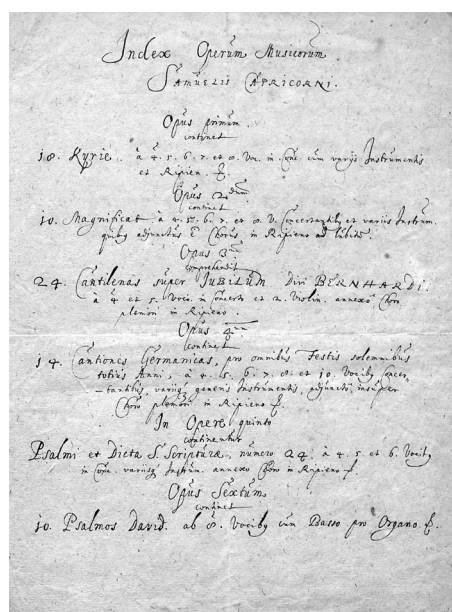 Index Operum Musicorum
SAMUELIS CAPRICORNI.
Opus primum.
continet
18. Kyrie. à 4. 5. 6. 7. et 8. Voc. in Conc. cum varijs Instrumentis
et Ripien. f.
Opus 2dum.
continet
10. Magnificat à 4. 5. 6. 7. et 8. V. Concertantibq et variis Instrum.
quibq adjunctus ē Chorus in Ripieno ad libitū.
Opus 3um
comprehendit
24. Cantilenas super JUBILUM Divi BERNHARDI.
à 4 et 5. Voci. in Concerto et 2. Violin. annexo Choro
pleniori in Ripieno.
Opus 4um
continet
14. Cantiones Germanicas, pro omnibus Festis solemnibus
totius Anni, à 4. 5. 6. 7. 8. et 10. Vocibq Concer-
tantibus, varijsq generis Instrumentis, adjuncto insuper
Choro pleniori in Ripieno f.
In Opere quinto
continentur
Psalmi et Dicta S. Scripturæ, numero 24. à 4. 5. et 6. Vocibq
in Conc. varijsq Instrum. annexo Choro in Ripieno f
Opus Sextum
continet
10. Psalmos David. ab 8. Vocibq cum Basso pro Organo. f.